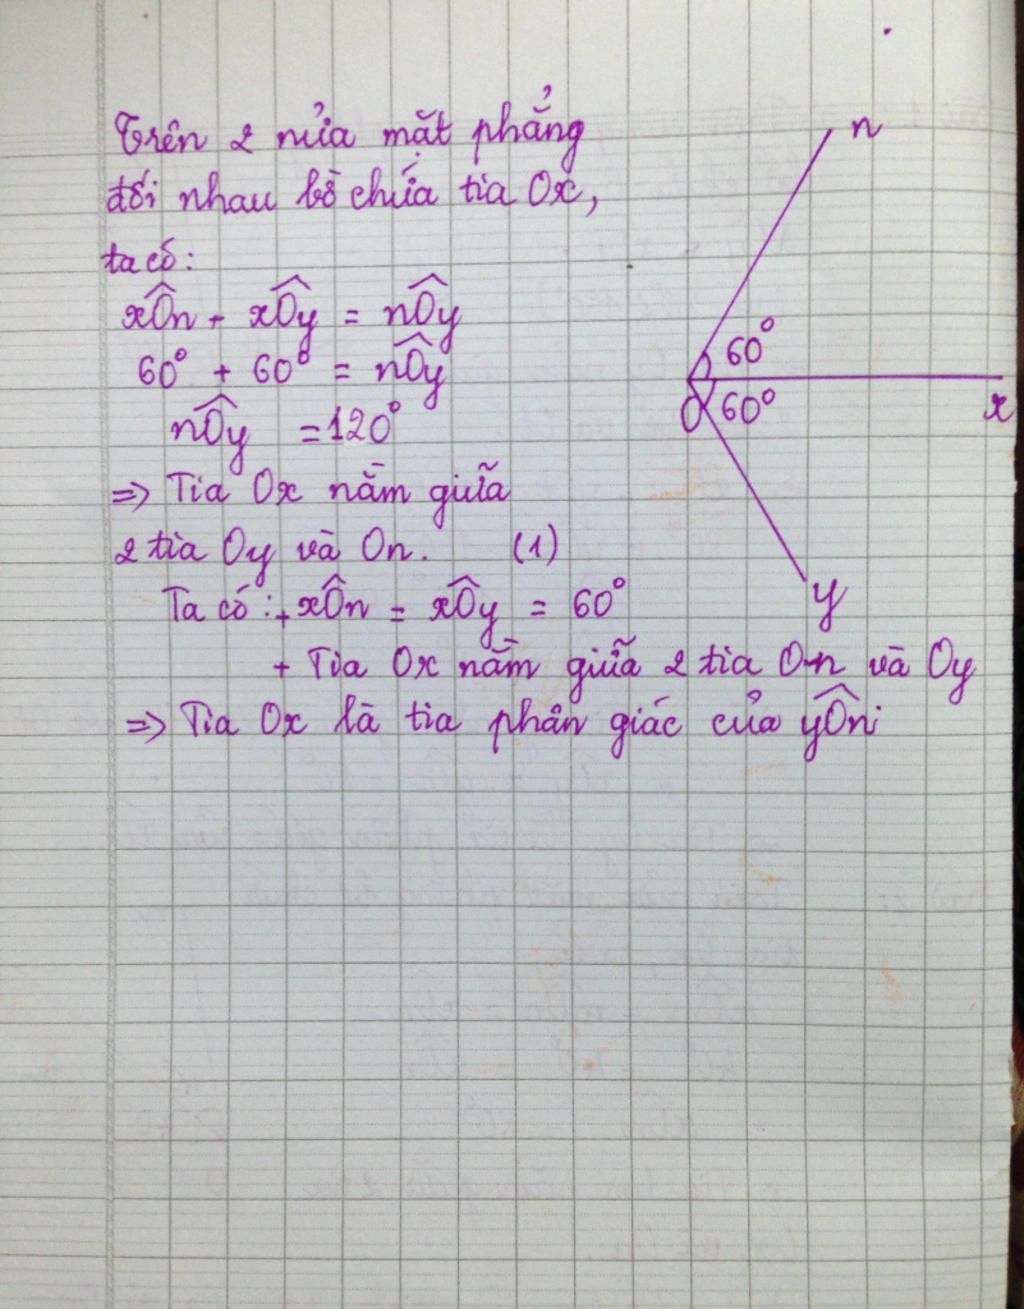 Trên 2 nửa mặt phẳng
đối nhau bờ chứa tia Ox,
ta có:
xÔn + xÔy = nÔy
60° + 60° = nÔy
nÔy = 120°
=> Tia Ox nằm giữa
2 tia Oy và On. (1)
Ta có: + xÔn = xÔy = 60°
+ Tia Ox nằm giữa 2 tia On và Oy
=> Tia Ox là tia phân giác của yÔn
n
60°
O 60°
x
y